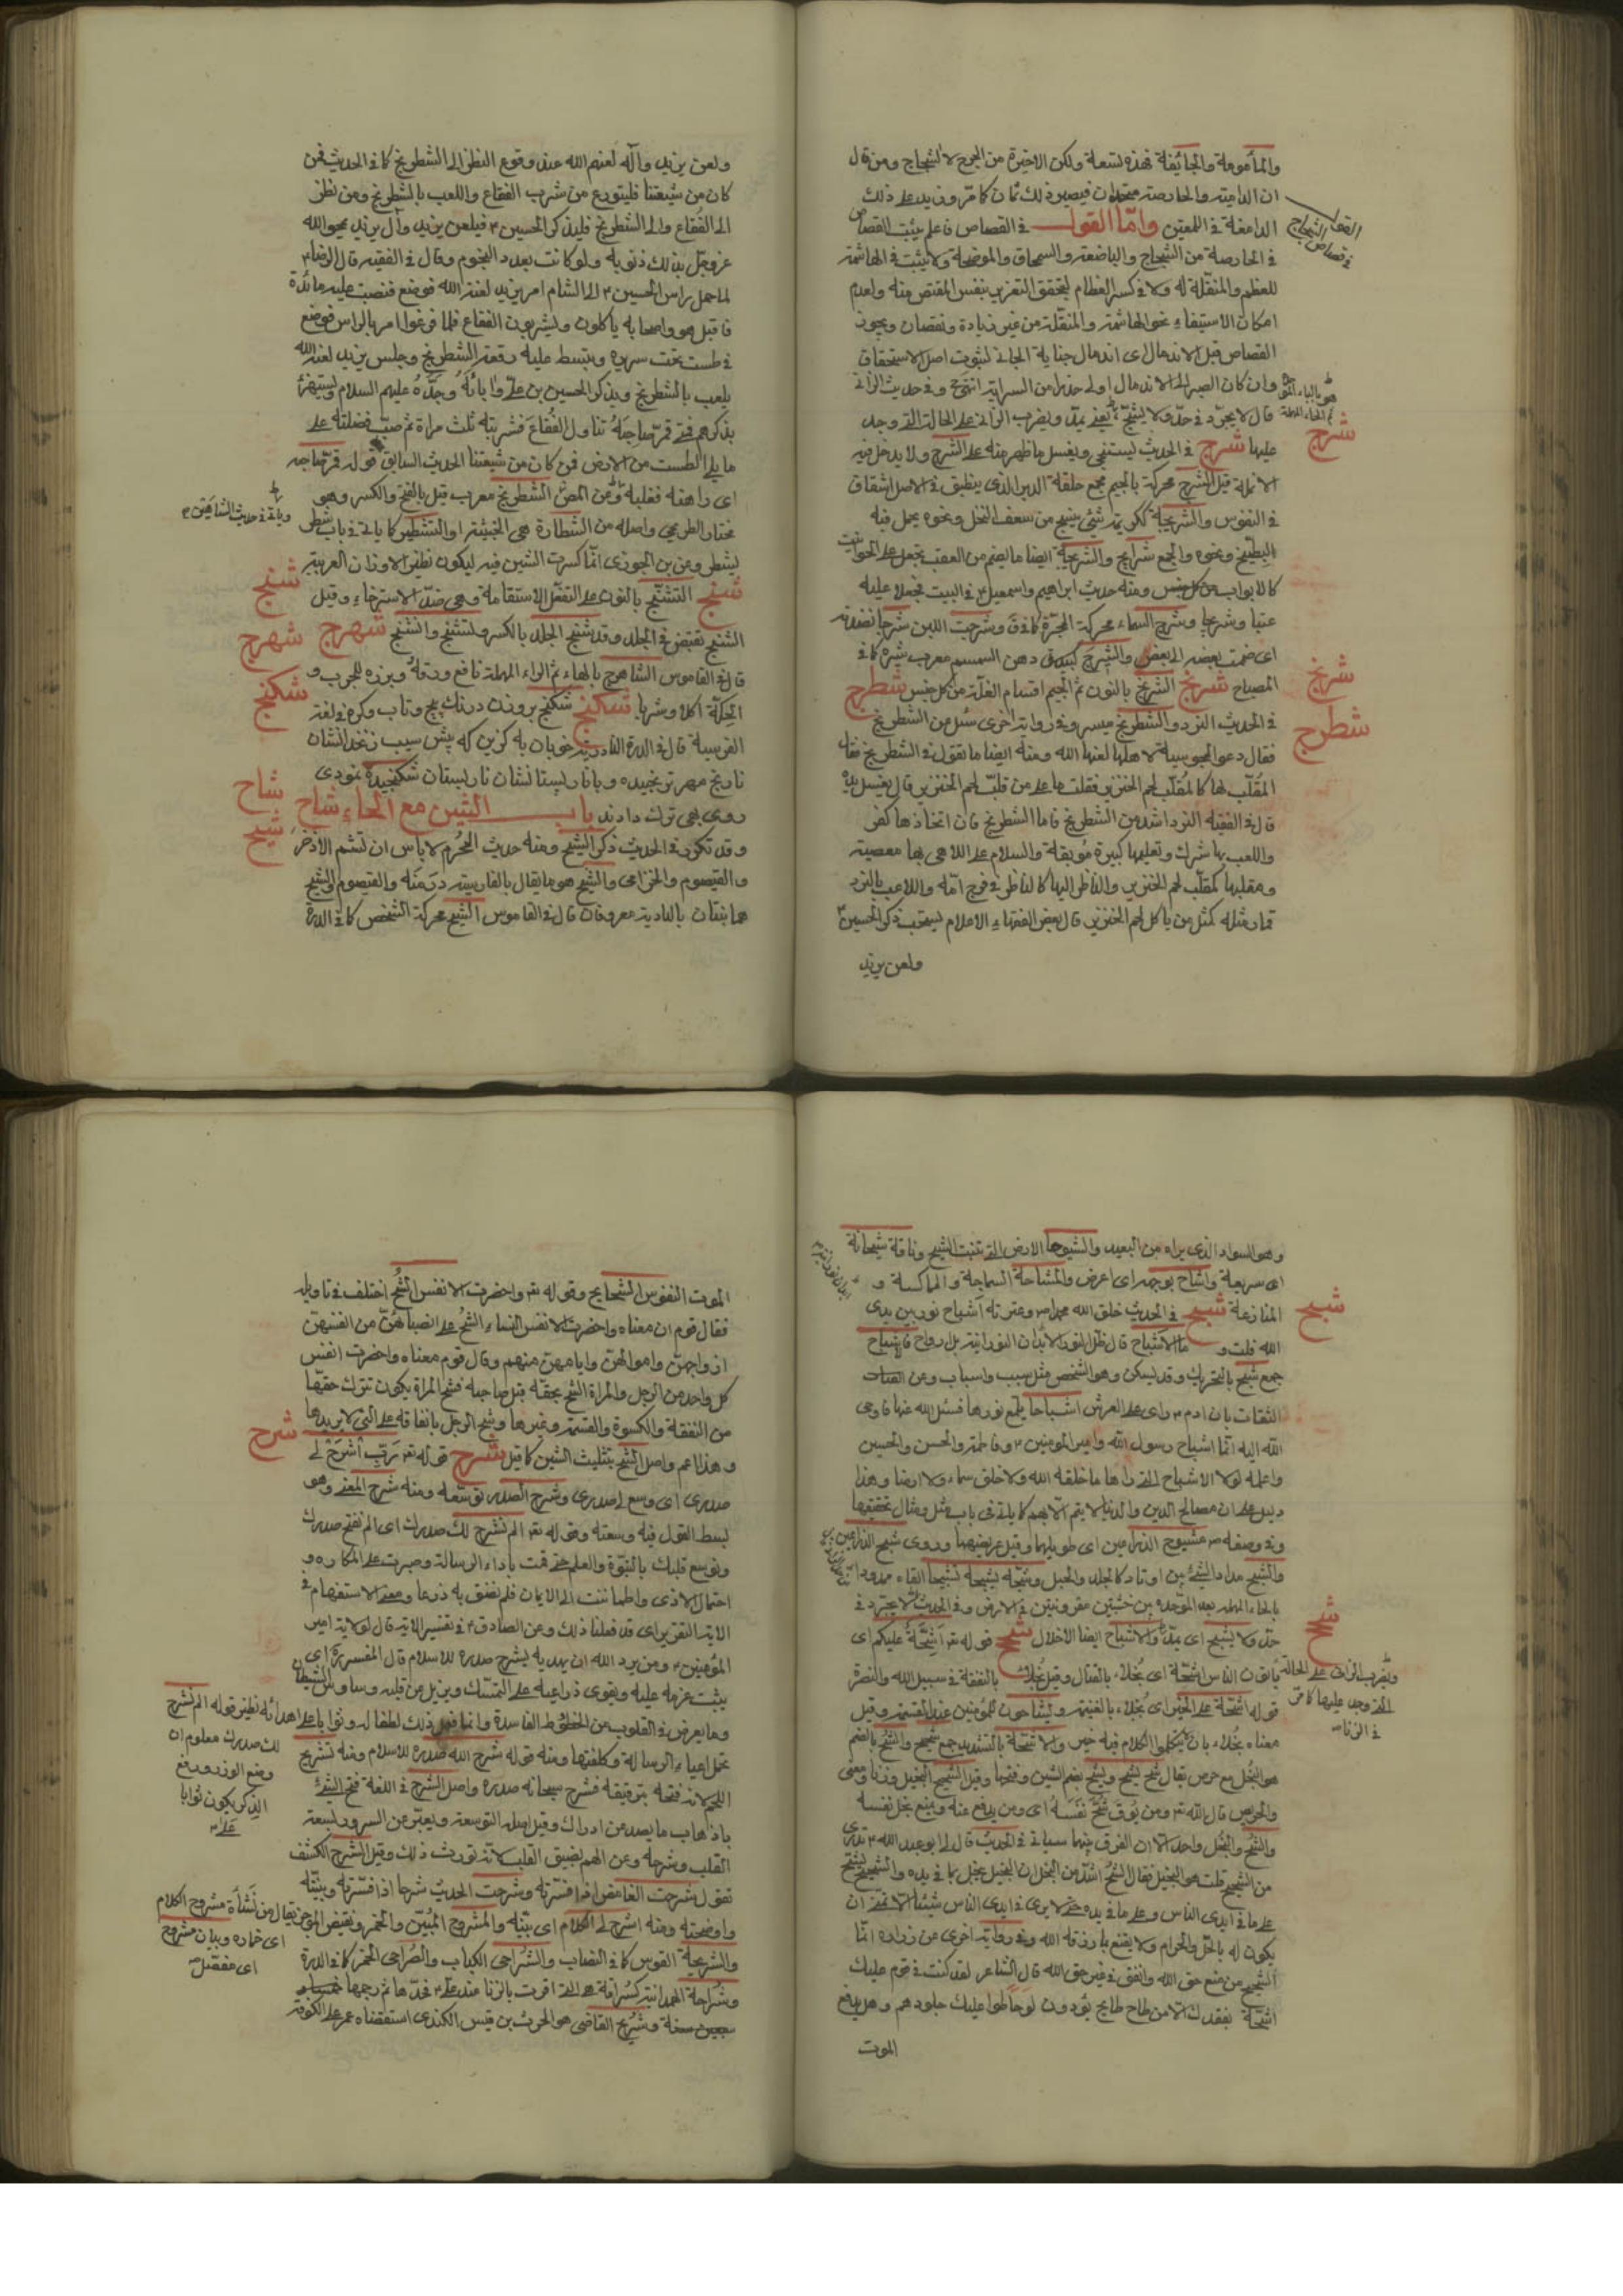 والمأمومة والجائفة فهذه تسعة ولكن الاخيرة من الجرح لا الشجاج ومن قال
ان الدامية والحارصة متحدان فيصير ذلك ثمان كما مرّ وزيد على ذلك
الدامغة في اللمعتين وامّا القول في القصاص فاعلم يثبت القصاص
القول في قصاص الشجاج
في الحارصة من الشجاج والباضعة والسمحاق والموضحة ولا يثبت في الهاشمة
للعظم والمنقّلة له ولا في كسر العظام لتحقق التغرير بنفس المقتص منه ولعدم
امكان الاستيفاء نحو الهاشمة والمنقّلة من غير زيادة ونقصان ويجوز
القصاص قبل الاندمال اى اندمال جناية الجانى لثبوت اصل الاستحقاق
وان كان الصبر الى الاندمال اولى حذرا من السراية انتهى وفي حديث الزانى
قال لا يجرّد في حدّ ولا يشبّح يعنى يمدّ ويضرب الزانى على الحالة التى وجد
عليها شرج في الحديث ليستنجى ويغسل ما ظهر منه على الشرج ولا يدخل فيه
شرج
الانملة قيل الشرج محركة بالجيم مجمع حلقة الدبر الذى ينطبق في الاصل انشقاق
في القوس والشريجة ككريمة شئ ينسج من سعف النخل ونحوه يحمل فيه
البطيخ ونحوه والجمع شرايج والشريجة ايضا ما يضم من القصب يجعل على الحوانيت
كالابواب ومنه حديث ابراهيم واسمعيل في البيت فجعلا عليه
عتبا وشريجا وشرج السماء محركة المجرّة كما في ق وشرجت اللبن شرجا نضدته
اى ضممت بعضه الى بعض والشيرج كبيدق دهن السمسم معرب شيره كما في
المصباح شرنج الشرنج بالنون ثم الجيم اقسام الغلّة من كل جنس شطرج
شرنج
في الحديث النرد والشطرنج ميسر وفي رواية اخرى سئل عن الشطرنج
شطرج
فقال دعوا المجوسية لاهلها لعنها الله ومنه ايضا ما تقول في الشطرنج فقال
المقلّب لها كالمقلّب لحم الخنزير فقلت ما على من قلّب لحم الخنزير قال يغسل يده
قال في الفقيه النرد اشد من الشطرنج فاما الشطرنج فان اتخاذها كفر
واللعب بها شرك وتعليمها كبيرة موبقة والسلام على اللاهى بها معصية
ومقلبها كمقلّب لحم الخنزير والناظر اليها كالناظر في فرج امّه واللاعب بالنرد
قمارا مثله كمثل من ياكل لحم الخنزير قال بعض الفقهاء الاعلام يستحب ذكر الحسين
ولعن يزيد
ولعن يزيد وآله لعنهم الله عند وقوع النظر الى الشطرنج كما في الحديث فمن
كان من شيعتنا فليتورع من شرب الفقاع واللعب بالشطرنج ومن نظر
الى الفقاع والى الشطرنج فليذكر الحسين وليلعن يزيد وآل يزيد يمحو الله
عزوجلّ بذلك ذنوبه ولو كانت بعدد النجوم وقال في الفقيه قال الرضا
لما حمل راس الحسين الى الشام امر يزيد لعنه الله فوضع فنصبت عليه مائدة
فاقبل هو واصحابه ياكلون ويشربون الفقاع فلما فرغوا امر بالراس فوضع
في طست تحت سريره وبسط عليه رقعة الشطرنج وجلس يزيد لعنه الله
يلعب بالشطرنج ويذكر الحسين بن على وابائه وجدّه عليهم السلام ويستهزئ
بذكرهم فمتى قمر صاحبه تناول الفقاع فشربه ثلث مراة ثم صبّ فضلته على
ما يلى الطست من الارض فمن كان من شيعتنا الحديث السابق قوله قمر صاحبه
اى راهنه فغلبه الشطرنج معرب قيل بالفتح والكسر وهو
مختار الطريحى واصله من الشطارة هى الخبيثة او التشطير كما ياتى في باب شطر
يشطر وعن بن الجوزى انّما كسرت الشين فيه ليكون نظير الاوزان العربية
شنج التشنّج بالنون على التفعّل الاستقامة وهى ضدّ الاسترخاء وقيل
شنج
الشنج تقبّض في الجلد وقد شنج الجلد بالكسر وتشنّج وانشنج شهرج
شهرج
قال في القاموس الشاهترج بالهاء ثم الراء المهملة نافع ورقه وبزره للجرب و
الحكّة اكلا وشربا شكنج شكنج بروزن درنك پيچ وتاب وكره في لغة
شكنج
الفرسية قال في الدرة النادرية
باب الشين مع الحاء شاح
شاح
وقد تكون في الحديث ذكر الشيح ومنه حديث المحرم لا باس ان تشم الاذخر
شيح
والقيصوم والخزامى والشيح هو ما يقال بالفارسية درمنه والقيصوم والشيح
هما نبتان بالبادية معروفان قال في القاموس الشبح محركة الشخص كما في الدرة
وهو السواد الذى يراه من البعيد والشيوحا الارض التى تنبت الشيح وناقة شيحانة
اى سريعة واشاح بوجهه اى اعرض والمشاحة السماجة والماكسة و
المنازعة شبح في الحديث خلق الله محمدا وعترته اشباح نور بين يدى
شبح
الله قلت وما الاشباح قال ظلّ النور الابدان النورانية بل ارواح فاشباح
جمع شبح بالتحريك وقد يسكن وهو الشخص مثل سبب واسباب وعن
الثقات بان ادم راى على العرش اشباحا يلمع نورها فسئل الله عنها فاوحى
الله اليه انّها اشباح رسول الله وامير المومنين وفاطمة والحسن والحسين
واعلمه لولا الاشباح التى راها ما خلقه الله ولا خلق سماء ولا ارضا وهذا
دليل على ان مصالح الدين والدنيا لا يتم الّا بهم كما ياتى في باب مثل ومثال تحقيقها
وفي وصفه مشبوح الذراعين اى طويلهما وقيل عريضهما وروى شبح الذراعين
والشبح مدّك الشئ بين اوتاد كالجلد والحبل وشبّحه يشبّحه تشبيحا القاه ممدودا
بالحاء المهملة بعد الموحدة بين خشبتين مغروزتين في الارض وفي الحديث لا يجرّد في
حدّ ولا يشبح اى مدّ والاشباح ايضا الاخلال شح قوله تعالى اشحّة عليكم اى
شح
ويضرب الزانى على الحالة التى وجد عليها كما مرّ في الزنا
ياتون الناس اشحّة اى بخلاء بالقتال وقيل بخلاء بالنفقة في سبيل الله والنصرة
قوله اشحّة على الخير اى بخلاء بالغنيمة ويشاحون المومنين عند القسمة وقيل
معناه بخلاء بان يتكلموا الكلام فيه خير والاشحّة بالتشديد جمع شحيح والشح بالضم
هو البخل مع حرص يقال شح يشح ويشح بضم الشين وفتحها وقيل الشحيح البخيل وزنا ومعنى
والحرص قال الله تعالى ومن يوق شحّ نفسه اى ومن يدفع عنه ويمنع بخل نفسه
والشح والبخل واحد الّا ان الفرق بينهما سياتى في الحديث قال لى ابو عبد الله تدرى
من الشحيح قلت هو البخيل فقال الشح اشدّ من البخل ان البخيل يبخل بما في يده والشحيح يشحّ
على ما في ايدى الناس وعلى ما في يده حتى لا يرى في ايدى الناس شيئا الّا تمنّى ان
يكون له بالحلّ والحرام ولا يقنع بما رزقه الله وفي رواية اخرى عن زرارة انّما
الشحيح من منع حق الله وانفق في غير حق الله قال الشاعر لقد كنت في قوم عليك
اشحّة بفقدك الّا من طاح طايح يودون لو خاطوا عليك جلودهم وهل يدفع
الموت
الموت النفوس الشحايح وقوله تعالى واحضرت الانفس الشحّ اختلف في تاويله
فقال قوم ان معناه واحضرت الانفس النساء الشح على انصبائهنّ من انفسهنّ
ازواجهنّ واموالهنّ وايامهنّ منهم وقال قوم معناه واحضرت انفس
كل واحد من الرجل والمراة الشح بحقّه قبل صاحبه فشح المراة يكون تترك حقّها
من النفقة والكسوة والقسمة وغيرها وشح الرجل بانفاقه على التى لا يريدها
وهذا اعم واصل الشح بتثليث الشين كما قيل شرح قوله تعالى ربّ اشرح لى
شرح
صدرى اى وسع لى صدرى وشرح الصدر توسّعه ومنه شرح المعنى وهو
بسط القول فيه وسعته وقوله تعالى الم نشرح لك صدرك اى الم نفتح صدرك
ونوسع قلبك بالنبوّة والعلم حتى قمت باداء الرسالة وصبرت على المكاره و
احتمال الاذى واطمأننت الى الايمان فلم تضق به ذرعا ومعنى الاستفهام في
الاية التقرير اى قد فعلنا ذلك وعن الصادق في تفسير الاية قال لولاية امير
المؤمنين ومن يرد الله ان يهديه يشرح صدره للاسلام قال المفسرون اى
يثبّت عزمه عليه ويقوى دواعيه على التمسّك ويزيل عن قلبه وساوس الشيطان
وما يعرض في القلوب من الخطوط الفاسدة وانما فعل ذلك لطفا له وثوابا على اهدائه نظير قوله الم نشرح
لك صدرك معلوم ان
وضع الوزر ورفع
الذكر يكون ثوابا
تحمل اعباء الرسالة وكلفتها ومنه قوله شرح الله صدره للاسلام ومنه تشريح
اللحم لانه فتحه بترقيقه فشرح سبحانه صدره واصل الشرح في اللغة فتح الشئ
باذهاب ما يصد عن ادراك وقيل اصله التوسعة ويعبّر عن السرور بسعة
القلب وشرحه وعن الهم بضيق القلب لانه تورث ذلك وقيل الشرح الكشف
تقول شرحت الغامض اذا فسّرته وشرحت الحديث شرحا اذا فسّرته وبيّنته
واوضحته ومنه اشرح لى الكلام اى بيّنه والمشروح المبيّن
مشروح الكلام
اى خماره وبيان مشروح
اى مفصّل
والشريحة القوس كما في النصاب والشراحى الكباب والصراحى الخمر كما في الدرة
وشراحة الهمدانية كسراقة هى التى اقرت بالزنا عند على فحدّها ثم رجمها
سبعين سنة وشريح القاضى هو الحرث بن قيس الكندى استقضاه عمر على الكوفة